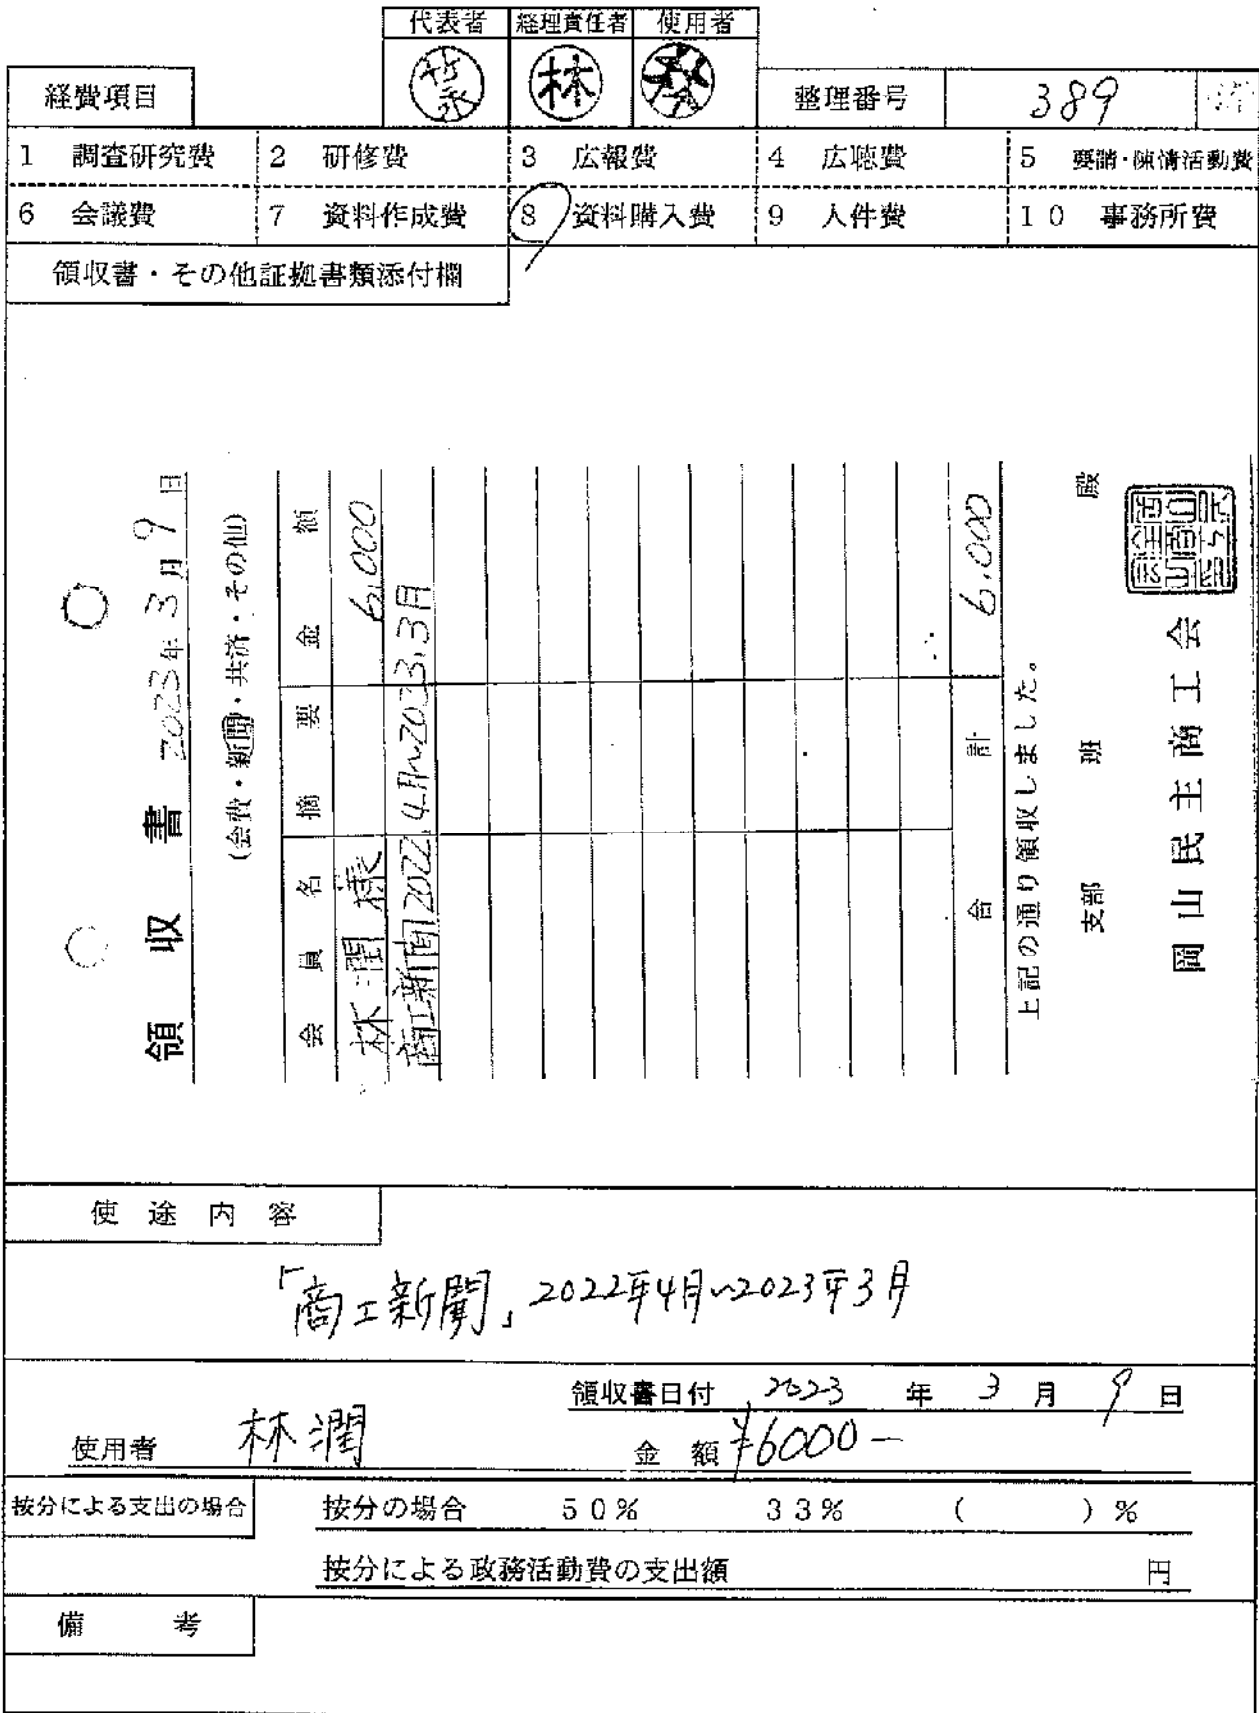 代表者 経理責任者 使用者
林
経費項目 整理番号 389
1 調査研究費 2 研修費 3 広報費 4 広聴費 5 要請・陳情活動費
6 会議費 7 資料作成費 8 資料購入費 9 人件費 10 事務所費
領収書・その他証拠書類添付欄
領収書 2023年3月9日
(会費・新聞・共済・その他)
会員名 摘要 金額
林潤様 6,000
商工新聞2022.4月〜2023.3月
合計 6,000
上記の通り領収しました。
支部 班 殿
岡山民主商工会
使途内容
「商工新聞」2022年4月〜2023年3月
領収書日付 2023年3月9日
使用者 林潤 金額 ¥6000-
按分による支出の場合 按分の場合 50% 33% ( )%
按分による政務活動費の支出額 円
備考